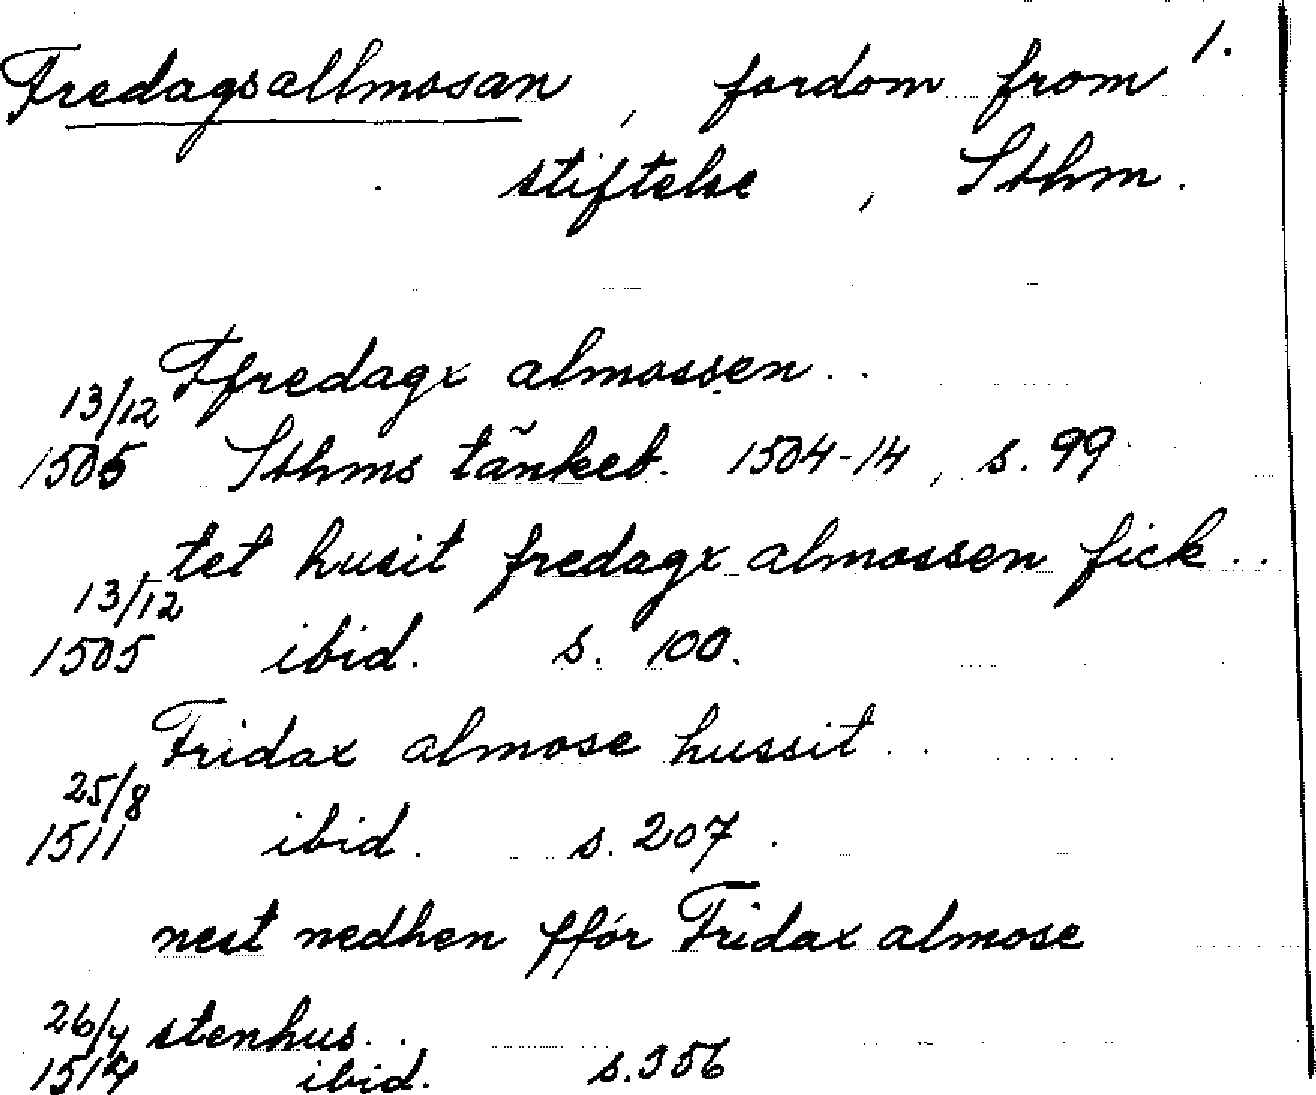 1.
Fredagsallmosan, fordom from
stiftelse, Sthm.
Ffredagx almossen..
13/12
1505 Sthms tänkeb. 1504-14, s. 99
tet husit fredagx almossen fick..
13/12
1505 ibid. s. 100.
Fridax almose hussit..
25/8
1511 ibid. s. 207.
nest nedhen ffór Fridax almose
26/4 stenhus..
1514 ibid. s. 356